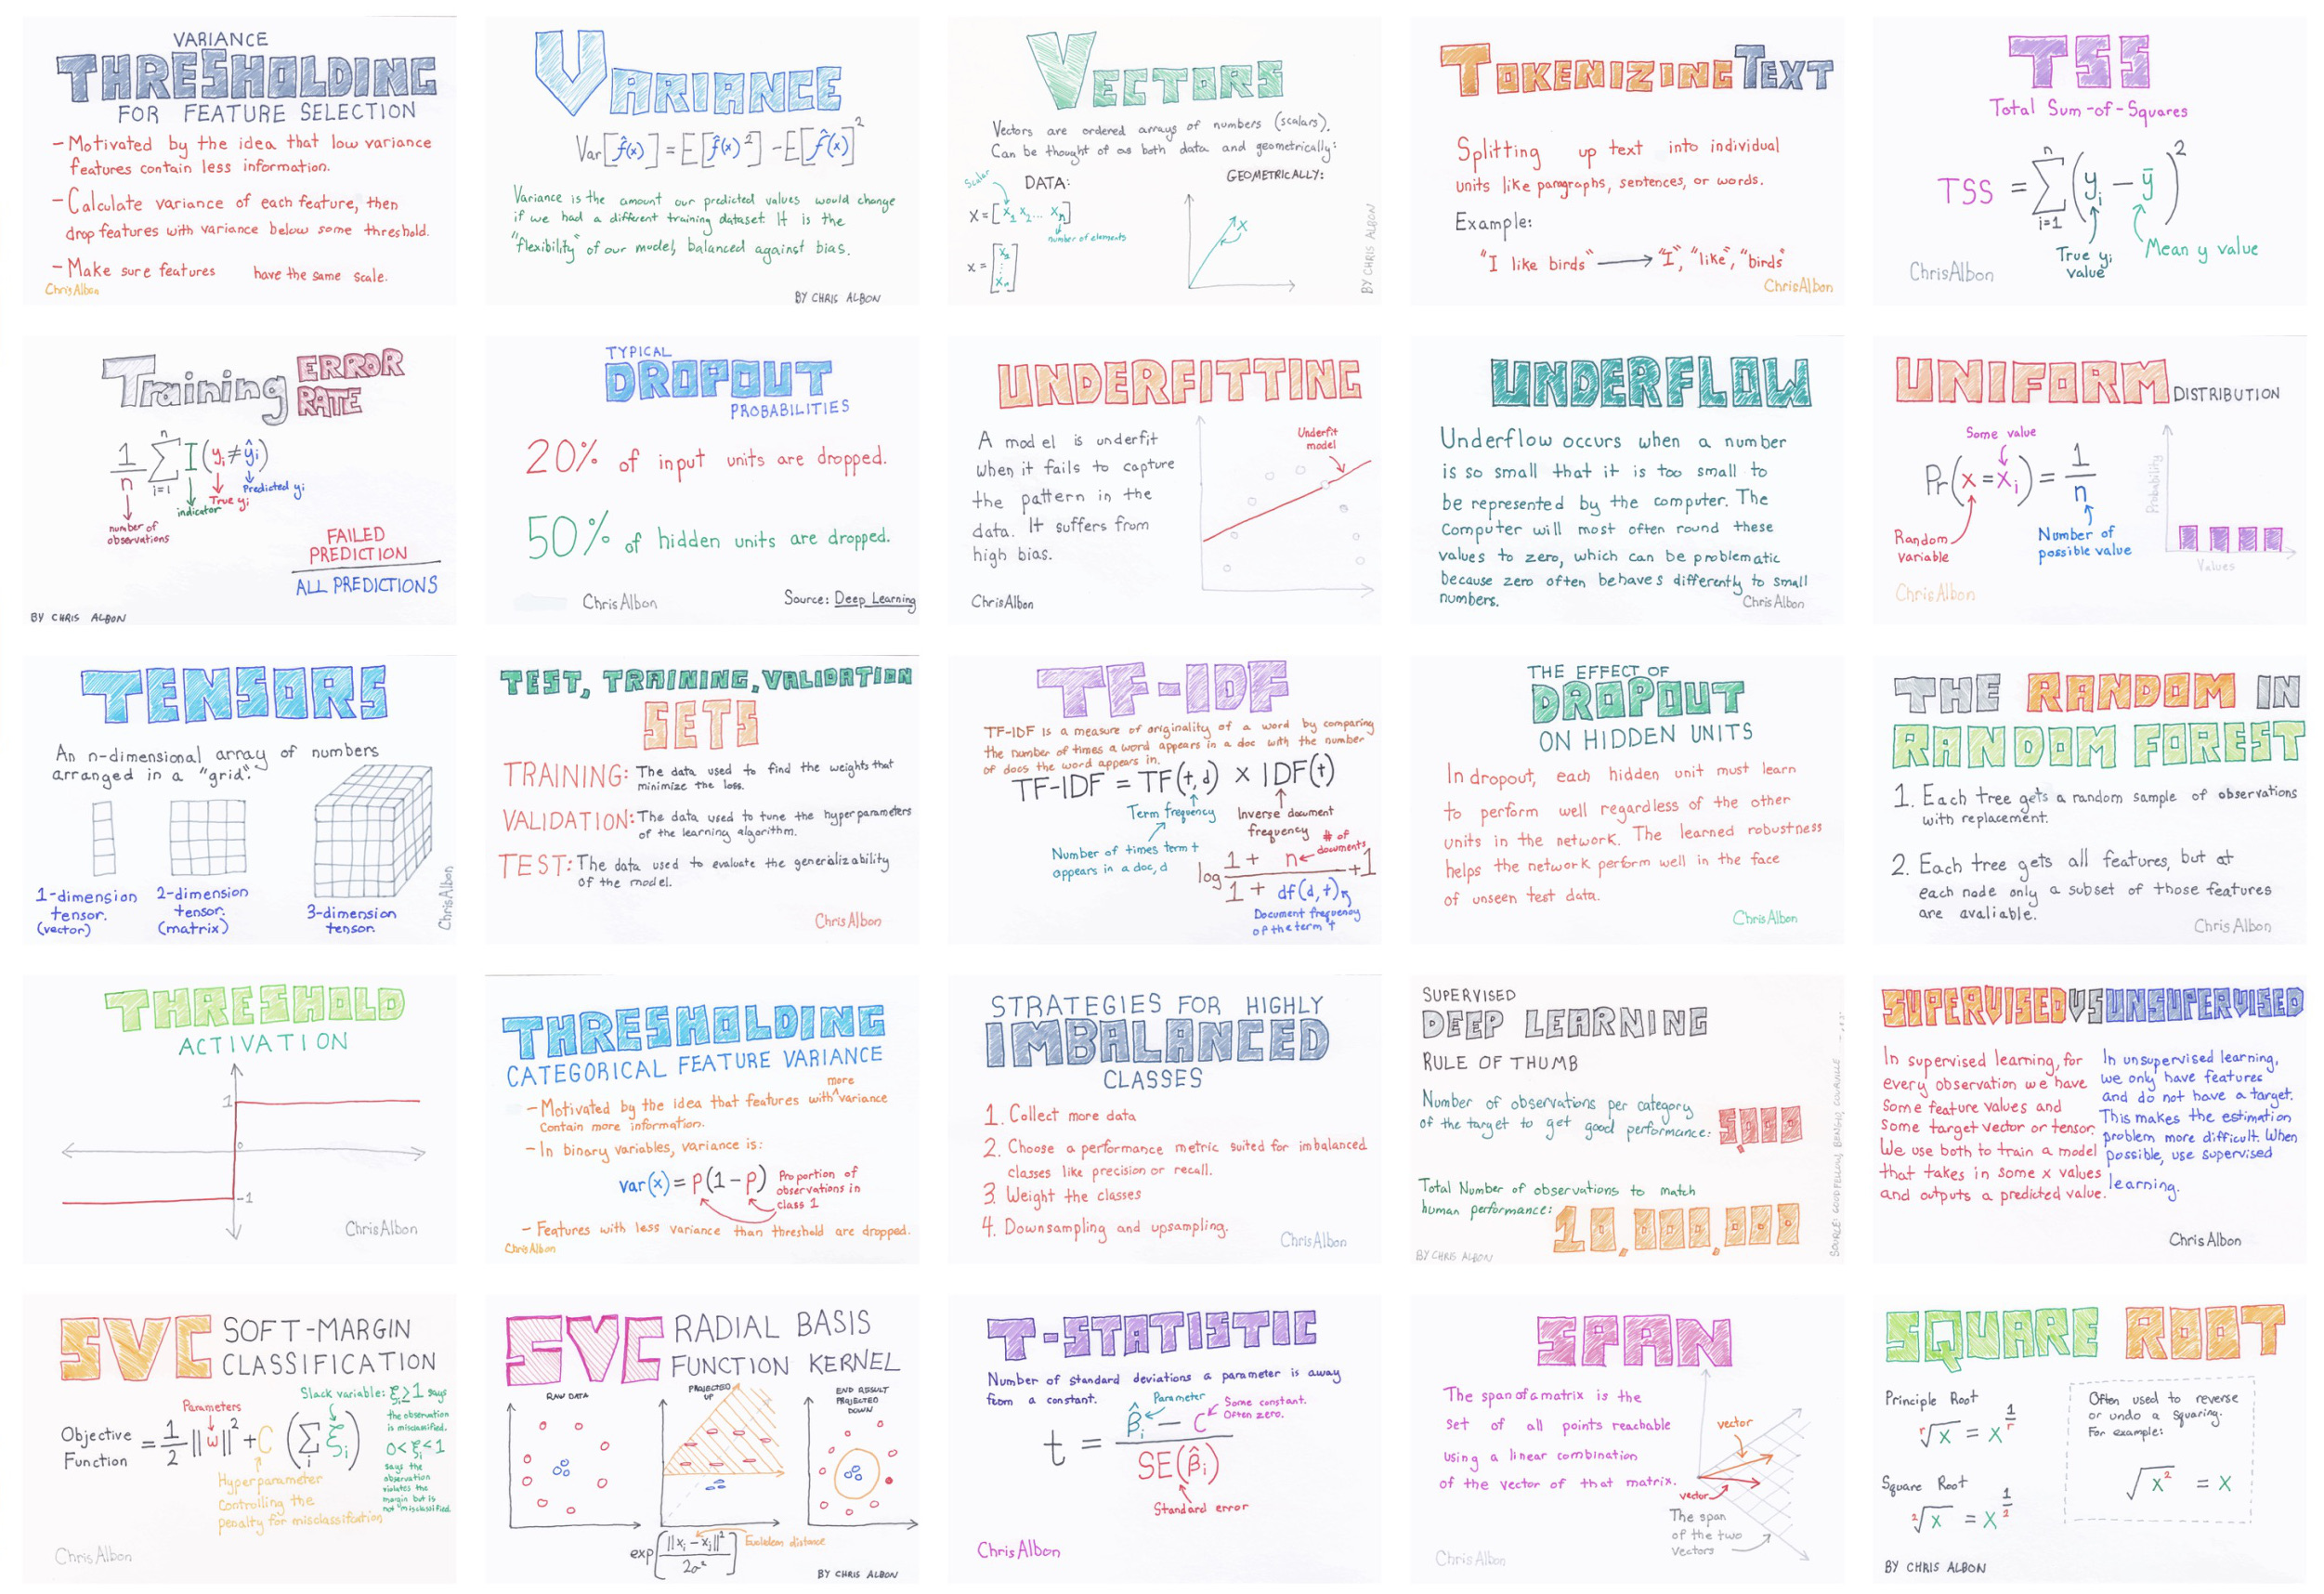 VARIANCE
THRESHOLDING
FOR FEATURE SELECTION
- Motivated by the idea that low variance
features contain less information.
- Calculate variance of each feature, then
drop features with variance below some threshold.
- Make sure features have the same scale.
ChrisAlbon
VARIANCE
Var[f̂(x)] = E[f̂(x)²] - E[f̂(x)]²
Variance is the amount our predicted values would change
if we had a different training dataset. It is the
"flexibility" of our model, balanced against bias.
BY CHRIS ALBON
VECTORS
Vectors are ordered arrays of numbers (scalars).
Can be thought of as both data and geometrically:
Scalar
DATA:
GEOMETRICALLY:
X = [x₁ x₂ ... xₙ]
number of elements
X = [x₁ ⋮ xₙ]
X
BY CHRIS ALBON
TOKENIZING TEXT
Splitting up text into individual
units like paragraphs, sentences, or words.
Example:
"I like birds" → "I", "like", "birds"
ChrisAlbon
TSS
Total Sum-of-Squares
TSS = Σ (yᵢ - ȳ)²
n
i=1
True yᵢ
value
Mean y value
ChrisAlbon
Training ERROR
RATE
1/n Σ I(yᵢ ≠ ŷᵢ)
n
i=1
Predicted yᵢ
True yᵢ
indicator
number of
observations
FAILED
PREDICTION
ALL PREDICTIONS
BY CHRIS ALBON
TYPICAL
DROPOUT
PROBABILITIES
20% of input units are dropped.
50% of hidden units are dropped.
ChrisAlbon
Source: Deep Learning
UNDERFITTING
A model is underfit
when it fails to capture
the pattern in the
data. It suffers from
high bias.
Underfit
model
ChrisAlbon
UNDERFLOW
Underflow occurs when a number
is so small that it is too small to
be represented by the computer. The
Computer will most often round these
values to zero, which can be problematic
because zero often behaves differently to small
numbers.
ChrisAlbon
UNIFORM DISTRIBUTION
Some value
Pr(x = xᵢ) = 1/n
Random
variable
Number of
possible value
Probability
Values
ChrisAlbon
TENSORS
An n-dimensional array of numbers
arranged in a "grid".
1-dimension
tensor.
(vector)
2-dimension
tensor.
(matrix)
3-dimension
tensor.
ChrisAlbon
TEST, TRAINING, VALIDATION
SETS
TRAINING: The data used to find the weights that
minimize the loss.
VALIDATION: The data used to tune the hyperparameters
of the learning algorithm.
TEST: The data used to evaluate the generalizability
of the model.
ChrisAlbon
TF-IDF
TF-IDF is a measure of originality of a word by comparing
the number of times a word appears in a doc with the number
of docs the word appears in.
TF-IDF = TF(t,d) × IDF(t)
Term frequency
Inverse document
frequency
Number of times term t
appears in a doc, d
# of
documents
log (1 + n)/(1 + df(d,t)) + 1
Document frequency
of the term t
THE EFFECT OF
DROPOUT
ON HIDDEN UNITS
In dropout, each hidden unit must learn
to perform well regardless of the other
units in the network. The learned robustness
helps the network perform well in the face
of unseen test data.
ChrisAlbon
THE RANDOM IN
RANDOM FOREST
1. Each tree gets a random sample of observations
with replacement.
2. Each tree gets all features, but at
each node only a subset of those features
are avaliable.
Chris Albon
THRESHOLD
ACTIVATION
1
0
-1
ChrisAlbon
THRESHOLDING
CATEGORICAL FEATURE VARIANCE
more
- Motivated by the idea that features with variance
Contain more information.
- In binary variables, variance is:
var(x) = p(1-p)
Proportion of
observations in
class 1
- Features with less variance than threshold are dropped.
ChrisAlbon
STRATEGIES FOR HIGHLY
IMBALANCED
CLASSES
1. Collect more data
2. Choose a performance metric suited for imbalanced
classes like precision or recall.
3. Weight the classes
4. Downsampling and upsampling.
ChrisAlbon
SUPERVISED
DEEP LEARNING
RULE OF THUMB
Number of observations per category
of the target to get good performance: 5,000
Total Number of observations to match
human performance: 10,000,000
BY CHRIS ALBON
SOURCE: GOODFELLOW, BENGIO, COURVILLE
SUPERVISED VS UNSUPERVISED
In supervised learning, for
every observation we have
Some feature values and
some target vector or tensor.
We use both to train a model
that takes in some x values
and outputs a predicted value.
In unsupervised learning,
we only have features
and do not have a target.
This makes the estimation
problem more difficult. When
possible, use supervised
learning.
Chris Albon
SVC SOFT-MARGIN
CLASSIFICATION
Slack variable: ξᵢ≥1 says
the observation
is misclassified.
0<ξᵢ<1
says the
observation
violates the
margin but is
not misclassified.
Parameters
Objective
Function
= 1/2 ||w||² + C (Σ ξᵢ)
i
Hyperparameter
Controlling the
penalty for misclassifcation
ChrisAlbon
SVC RADIAL BASIS
FUNCTION KERNEL
RAW DATA
PROJECTED
UP
END RESULT
PROJECTED
DOWN
exp(||xᵢ - xⱼ||²/2σ²)
Euclidean distance
BY CHRIS ALBON
T-STATISTIC
Number of standard deviations a parameter is away
from a constant.
Parameter
Some constant.
Often zero.
t = (β̂ᵢ - C)/SE(β̂ᵢ)
Standard error
ChrisAlbon
SPAN
The span of a matrix is the
set of all points reachable
using a linear combination
of the vector of that matrix.
vector
vector
The span
of the two
Vectors
ChrisAlbon
SQUARE ROOT
Principle Root
ʳ√x = x^(1/r)
Square Root
²√x = x^(1/2)
Often used to reverse
or undo a squaring.
For example:
√x² = x
BY CHRIS ALBON